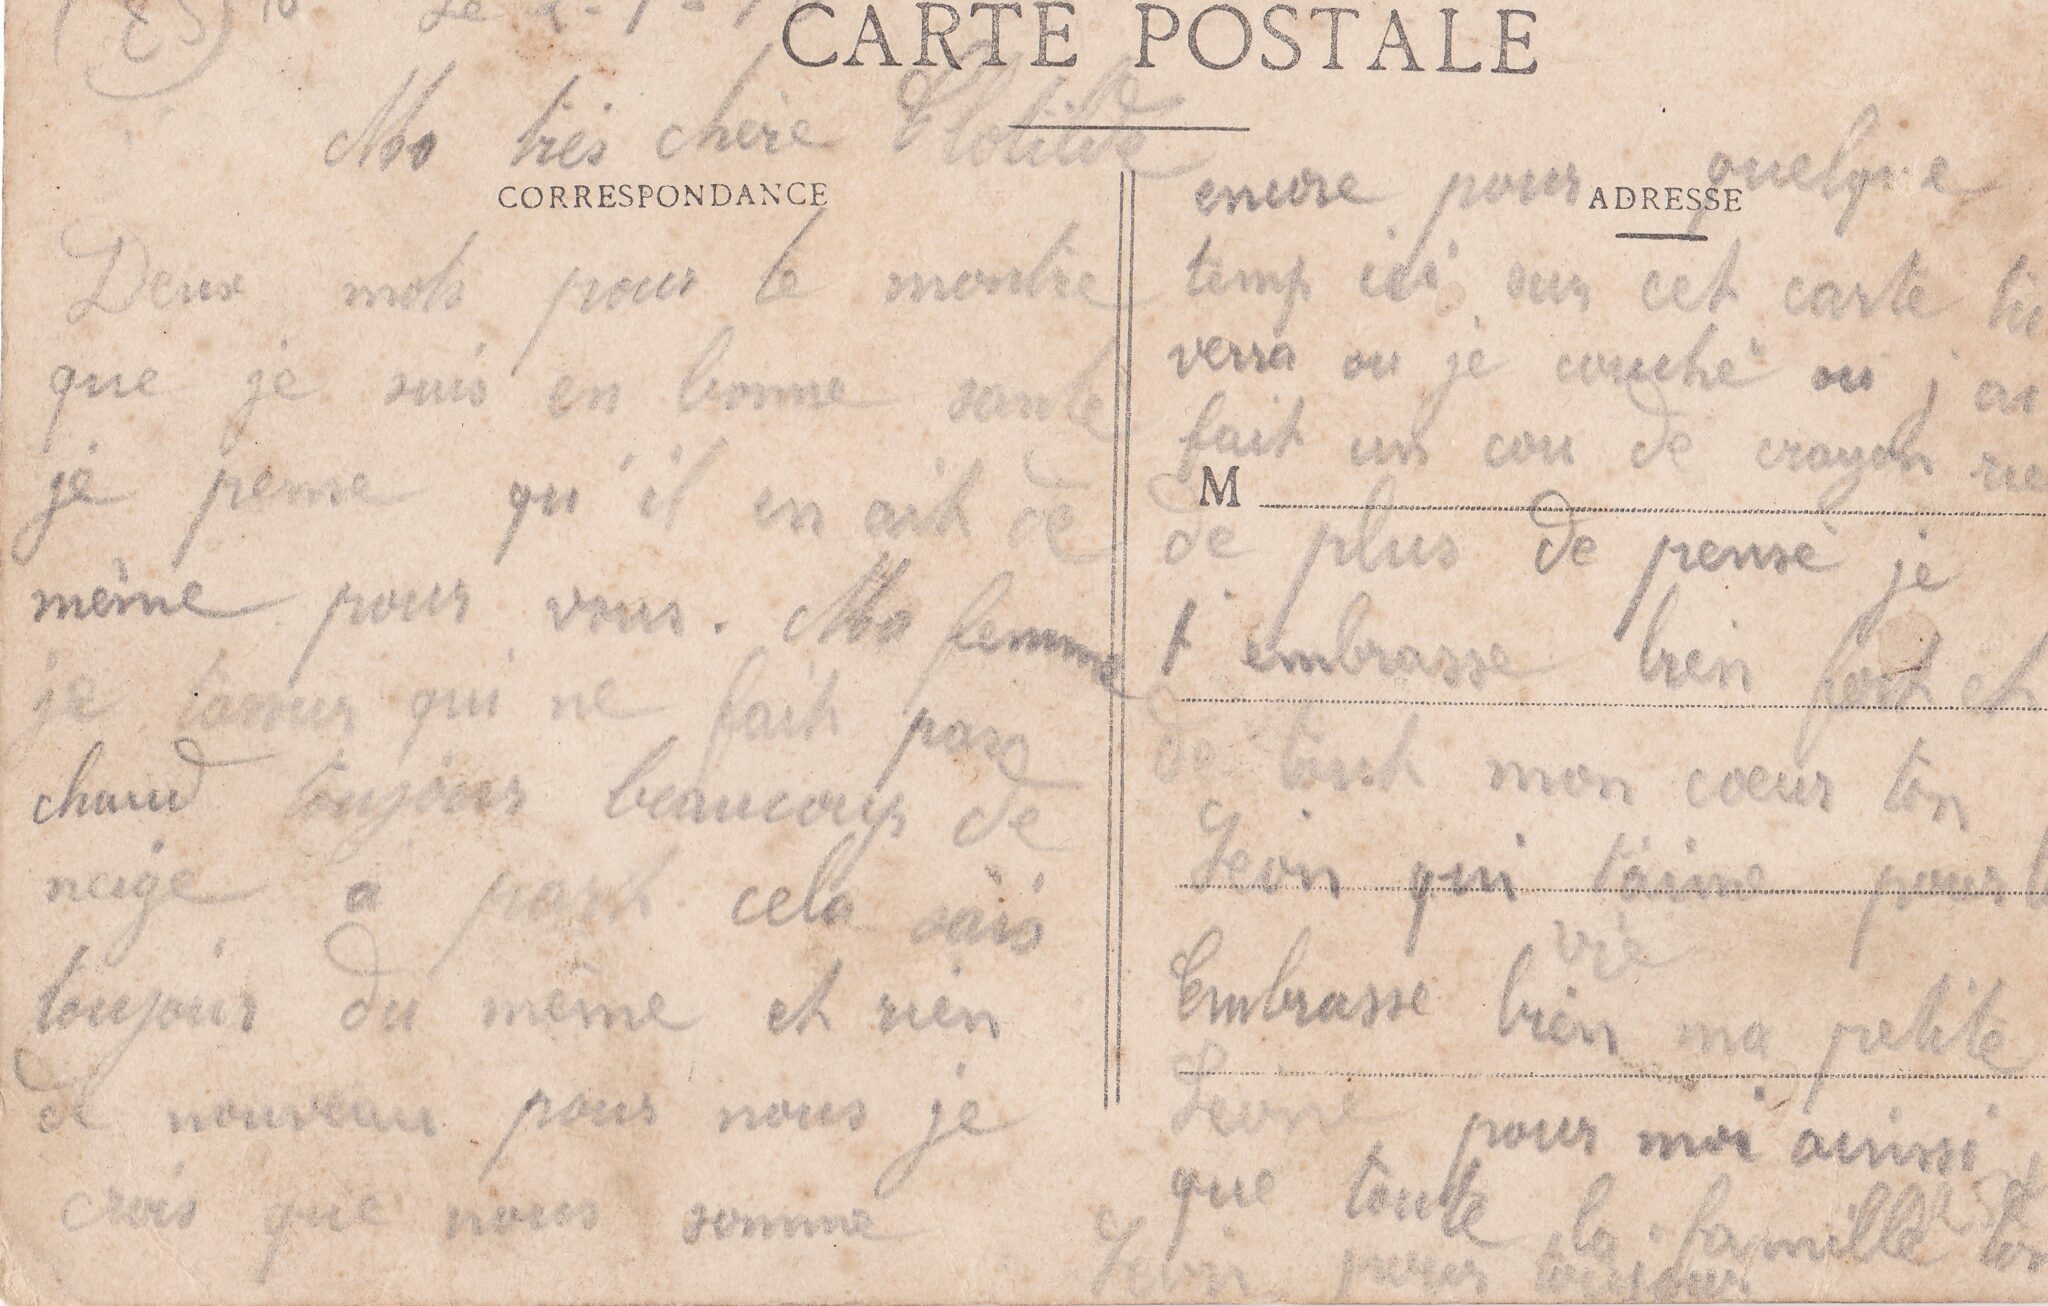 CARTE POSTALE
Ma très chère Clotilde
CORRESPONDANCE
Deux mots pour te montre
que je suis en bonne sante
je pense qu'il en ait de
même pour vous. Ma femme
je tassur qui ne fait pas
chaud toujours beaucoup de
neige a part cela sais
toujour du même et rien
de nouveau pour nous je
crois que nous somme
ADRESSE
encore pour quelque
temp ici sur cet carte tu
verra ou je couché ou j ai
fait un cou de crayon rie
M
de plus de pensé je
t embrasse bien fort et
de tout mon coeur ton
Leon qui t'aime pour l
vie
Embrasse bien ma petite
Leone pour moi ainssi
que toute la famille ton
Leon pour toujour